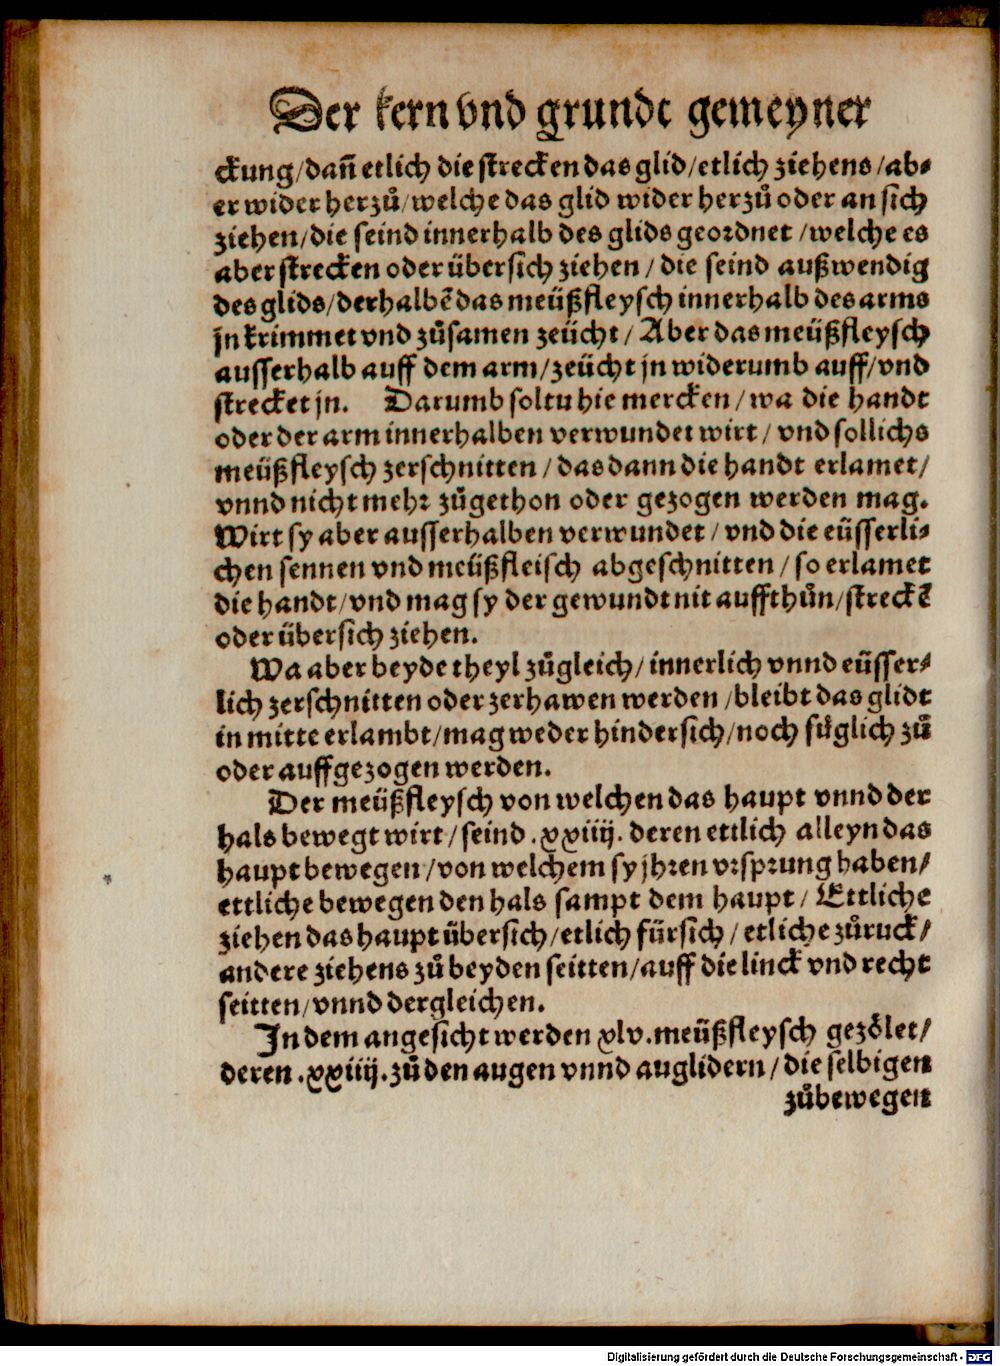 Der kern vnd grundt gemeyner
ckung/dañ etlich die strecken das glid/etlich ziehens/ab⸗
er wider herzů/welche das glid wider herzů oder an sich
ziehen/die seind innerhalb des glids geordnet/welche es
aber strecken oder übersich ziehen/ die seind außwendig
des glids/derhalbē das meüßfleysch innerhalb des arms
jn krimmet vnd zůsamen zeücht/ Aber das meüßfleysch
ausserhalb auff dem arm/zeücht jn widerumb auff/vnd
strecket jn. Darumb soltu hie mercken/wa die handt
oder der arm innerhalben verwundet wirt/ vnd sollichs
meüßfleysch zerschnitten/das dann die handt erlamet/
vnnd nicht mehr zůgethon oder gezogen werden mag.
Wirt sy aber ausserhalben verwundet/ vnd die eüsserli⸗
chen sennen vnd meüßfleisch abgeschnitten/so erlamet
die handt/vnd mag sy der gewundt nit auffthůn/streckē
oder übersich ziehen.
Wa aber beyde theyl zůgleich/innerlich vnnd eüsser⸗
lich zerschnitten oder zerhawen werden/bleibt das glidt
in mitte erlambt/mag weder hindersich/noch füglich zů
oder auffgezogen werden.
Der meüßfleysch von welchen das haupt vnnd der
hals bewegt wirt/seind .xxiiij. deren ettlich alleyn das
haupt bewegen/von welchem sy jhren vrsprung haben/
ettliche bewegen den hals sampt dem haupt/ Ettliche
ziehen das haupt übersich/etlich fürsich/ etliche zůruck/
andere ziehens zů beyden seitten/auff die linck vnd recht
seitten/vnnd dergleichen.
In dem angesicht werden xlv. meüßfleysch gezölet/
deren .xxiiij. zů den augen vnnd auglidern/die selbigen
zůbewegen
Digitalisierung gefördert durch die Deutsche Forschungsgemeinschaft - DFG